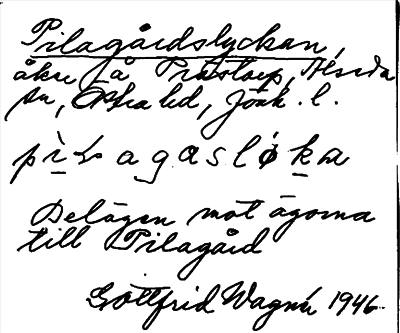 Pilagårdslyckan,
åker å Prästorp, Hvseda
sn, Östra hd, Jönk. l.
pìlagasløka
Belägen mot ägorna
till Pilagård
Gottfrid Wagnér 1946